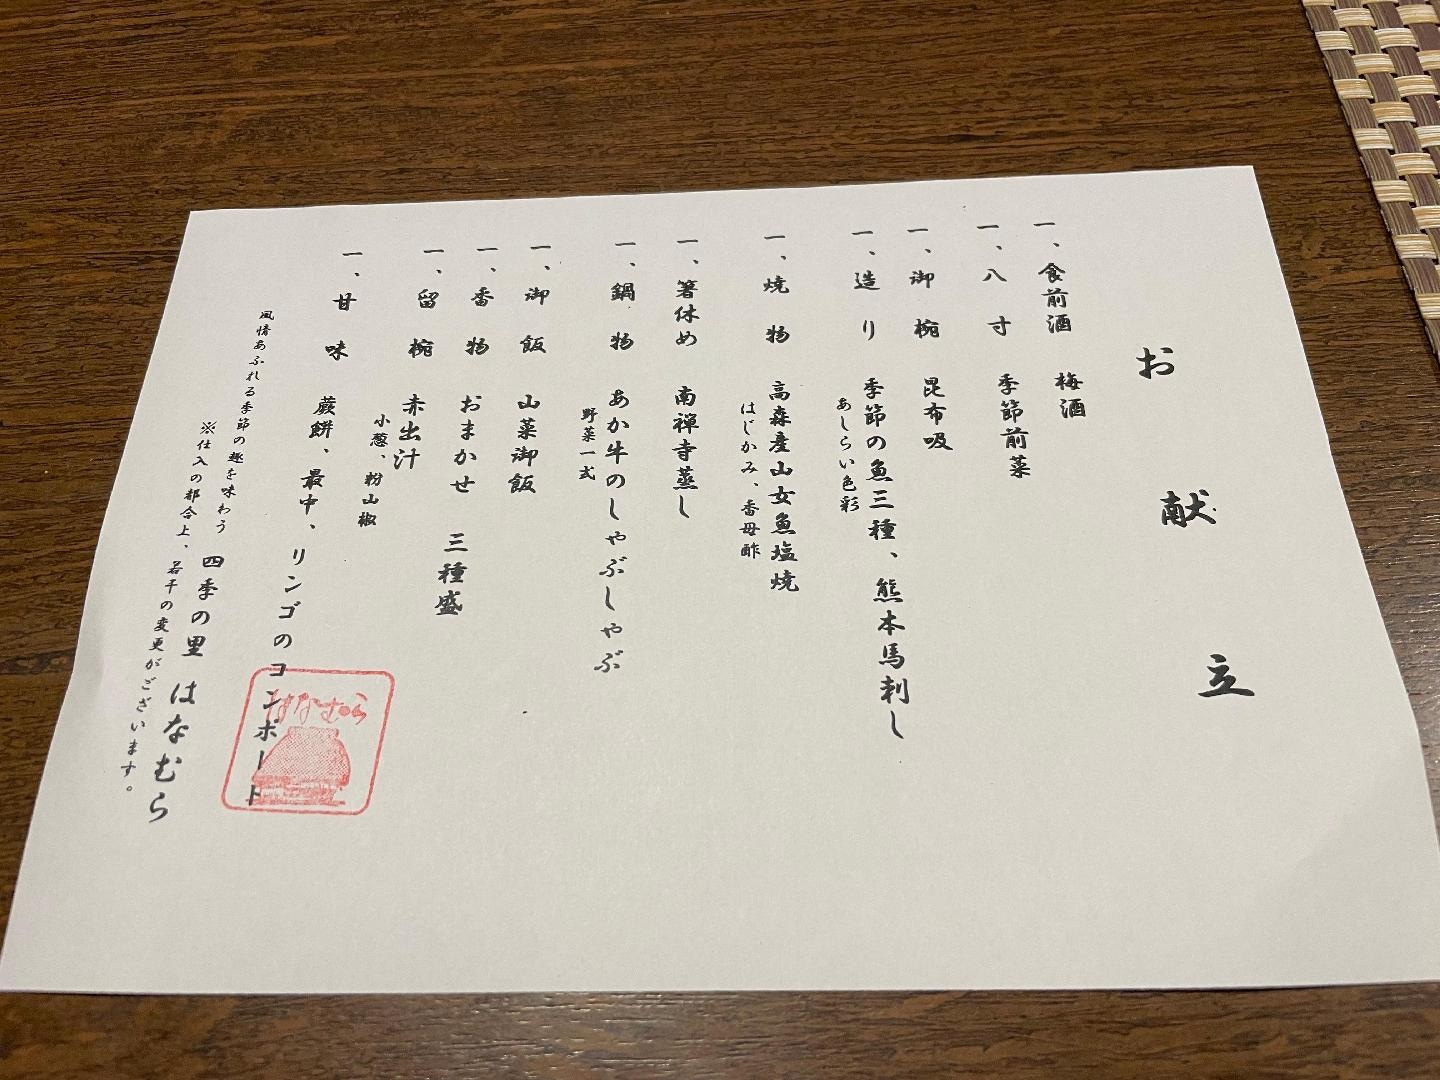 お献立
一、食前酒 梅酒
一、八寸 季節前菜
一、御椀 昆布吸
一、造り 季節の魚三種、熊本馬刺し
あしらい色彩
一、焼物 高森産山女魚塩焼
はじかみ、香母酢
一、箸休め 南禅寺蒸し
一、鍋物 あか牛のしゃぶしゃぶ
野菜一式
一、御飯 山菜御飯
一、香物 おまかせ 三種盛
一、留椀 赤出汁
小葱、粉山椒
一、甘味 蕨餅、最中、リンゴのコンポート
はなむら
風情あふれる季節の趣を味わう 四季の里 はなむら
※仕入の都合上、若干の変更がございます。